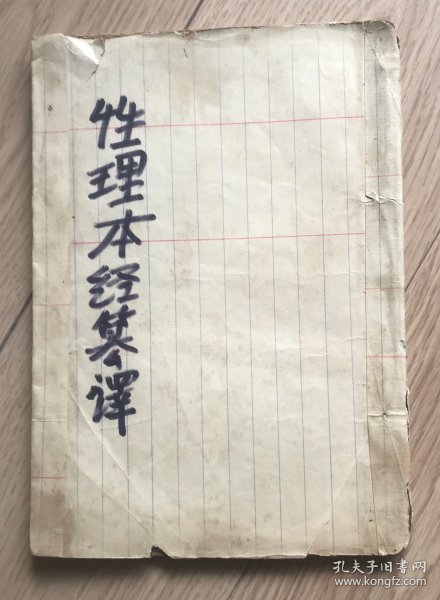 性理本经译
孔夫子旧书网
www.kongfz.com